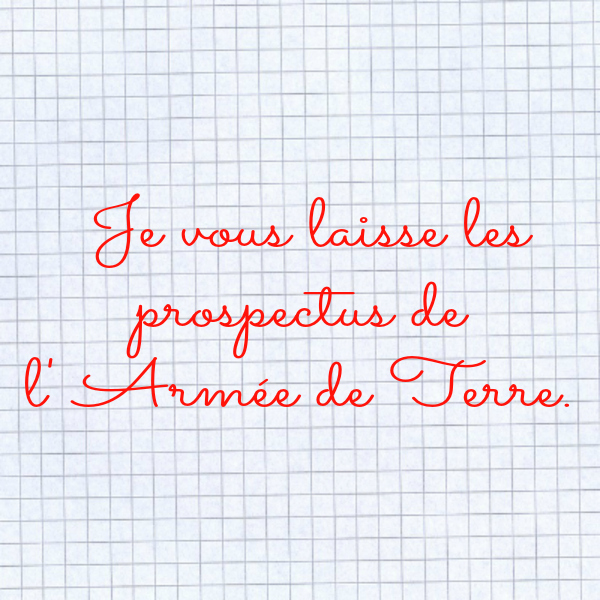 Je vous laisse les
prospectus de
l' Armée de Terre.